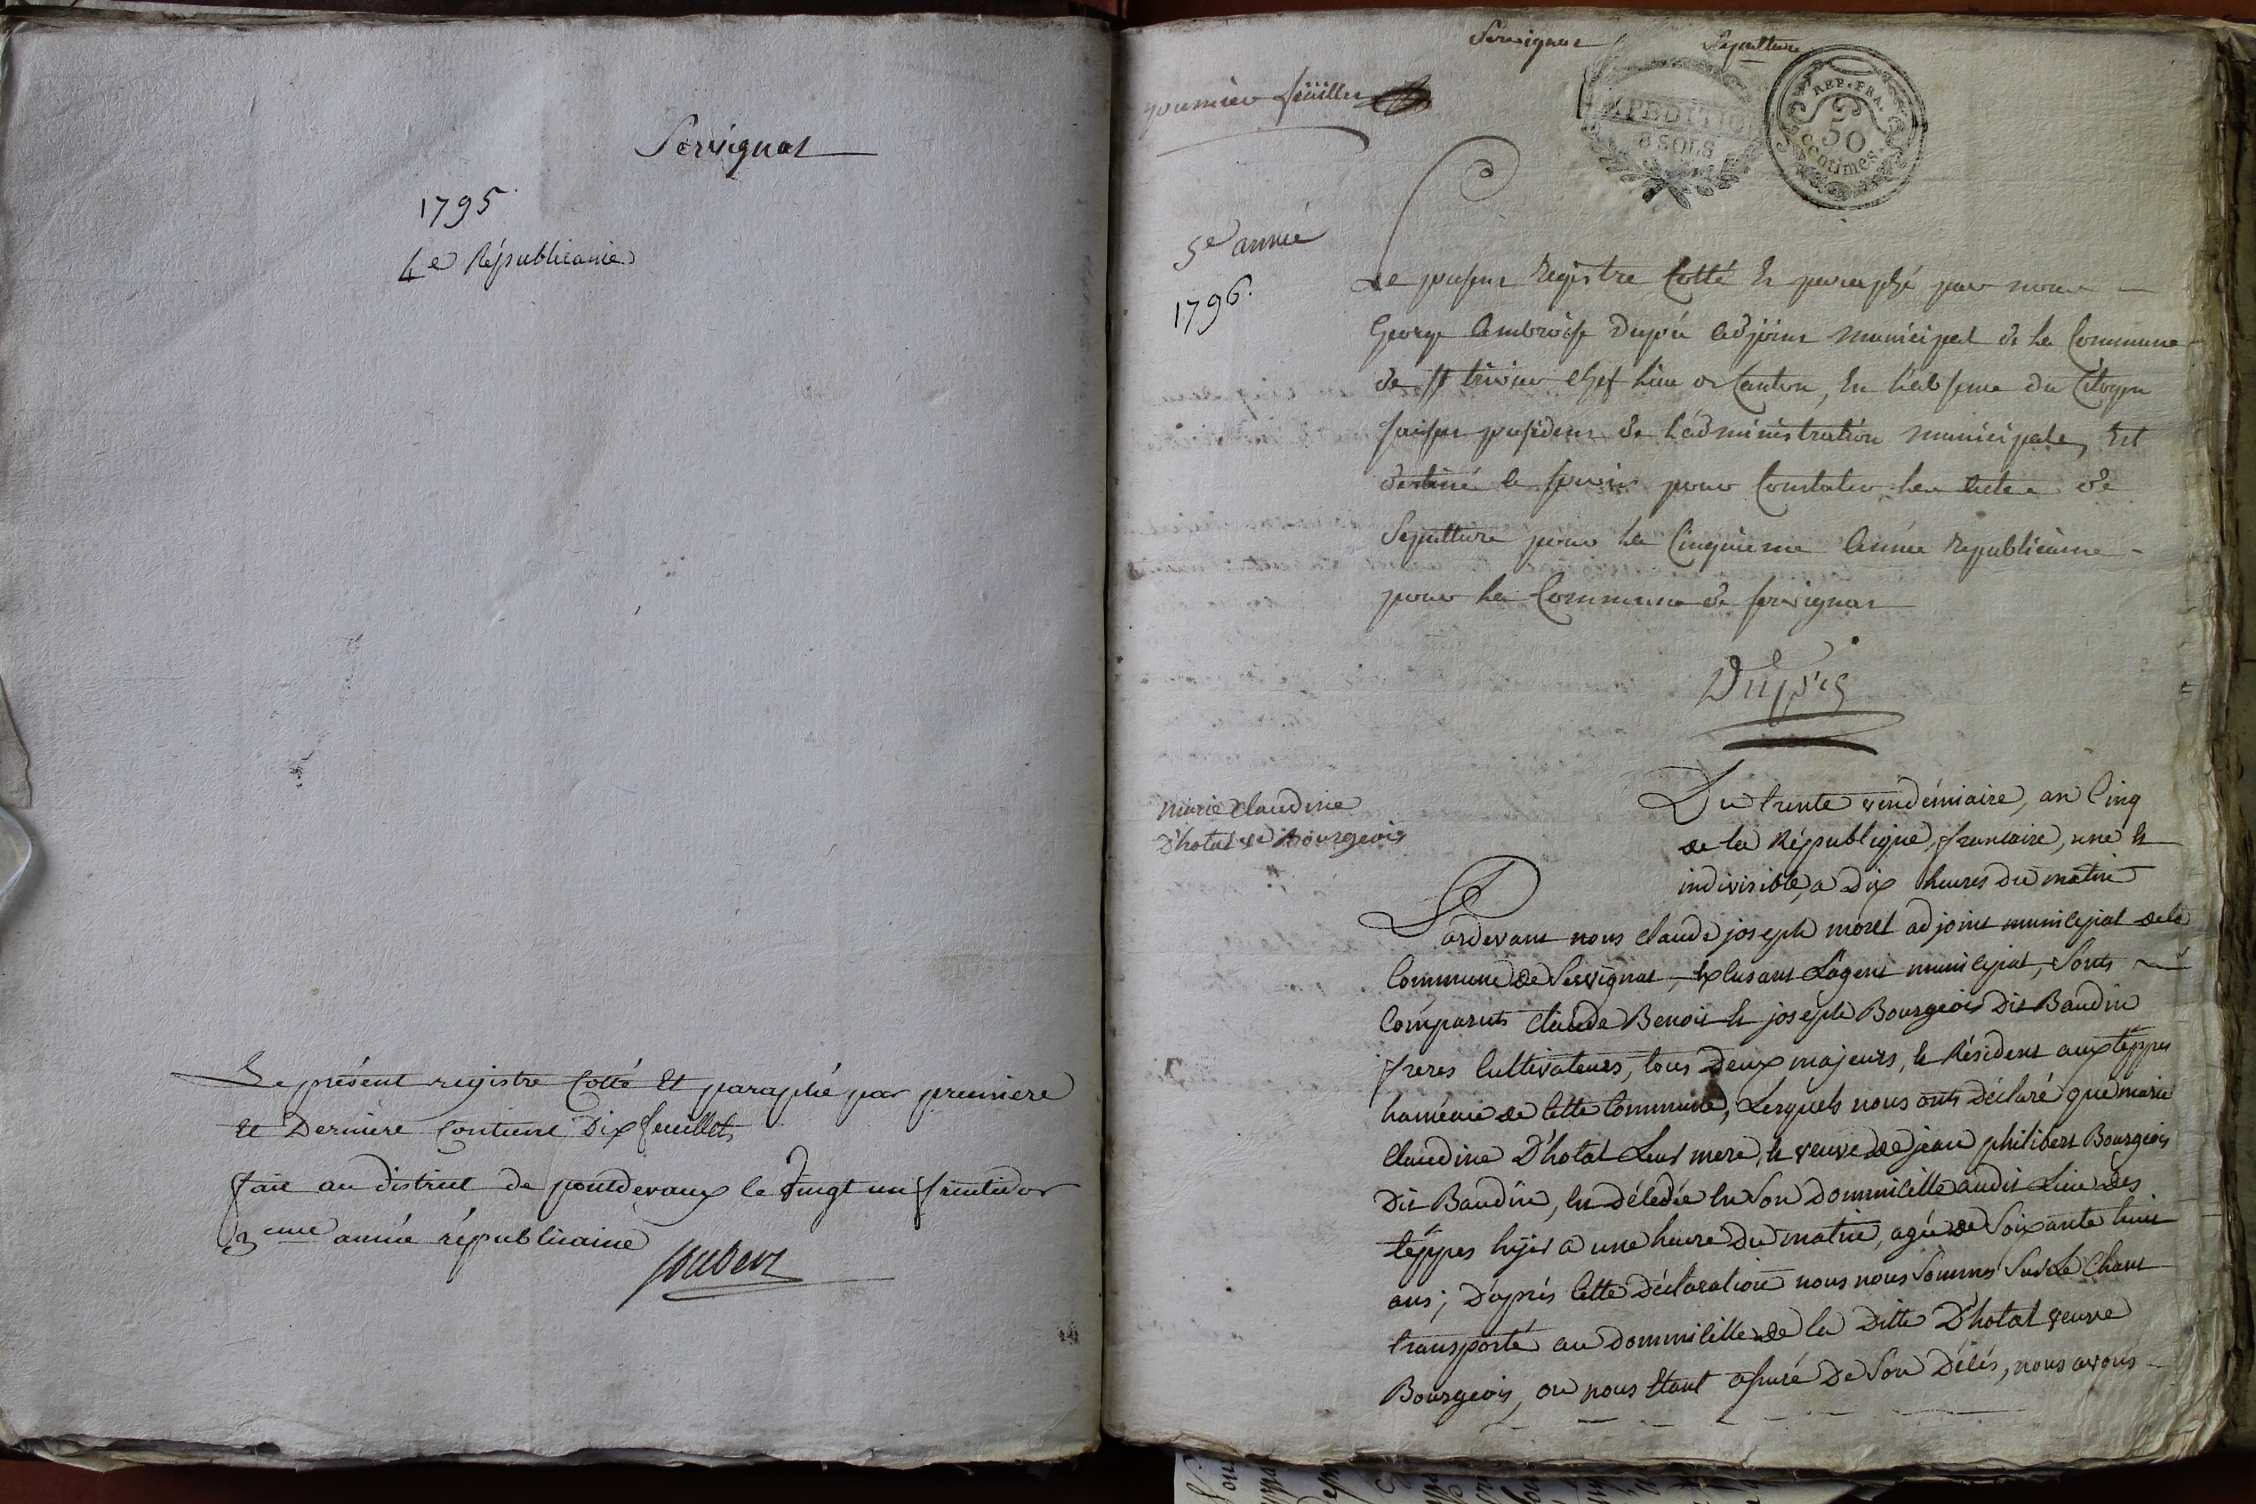 Servignat
1795
4e Républicaine
Le présent registre Cotté Et paraphé par premiere
Et Derniere Contient Dix feuillets
fait au district de pontdevaux le vingt un fructidor
3eme année républicaine
Joubert
Servignat Sepulture
premier feuillet
EXPEDITIO
8 SOLS
REP. FRA.
50
centimes
5e année
1796.
Le present Registre Cotté Et paraphé par nous
George Ambroise Dupré Adjoint Municipal de la Commune
de st trivier Chef lieu de Canton, En l'absence du Citoyen
president de l'administration municipale, Est
destiné a servir pour Constater les Actes de
Sepulture pour la Cinquieme Année Republicaine
pour la Commune de servignat
Marie Claudine
D'hotal ve Bourgeois
Du trente vendémiaire, an Cinq
de la République francaise, une Et
indivisible, a Dix heures du matin
Pardevant nous Claude joseph morel adjoint municipal dela
Commune de Servignat, Lagent municipal, Sonts
Comparuts Claude Benoit Et joseph Bourgeois Dit Baudin
freres Cultivateurs, tous Deux majeurs, Et Résident aux teppes
hameau de Cette Commune, Lesquels nous onts Déclaré que marie
Claudine D'hotal Leur mere, Et veuve de jean philibert Bourgeois
Dit Baudin, Est Délédée En Son Dommicille audit Lieu Des
teppes hyer a une heure Du matin, agée de Soixante huit
ans; D'après Cette Déclaration nous nous Sommes Sur Le Chant
transporté au Dommicille de la Ditte D'hotal veuve
Bourgeois, ou nous Etant assuré De Son Délés, nous avons